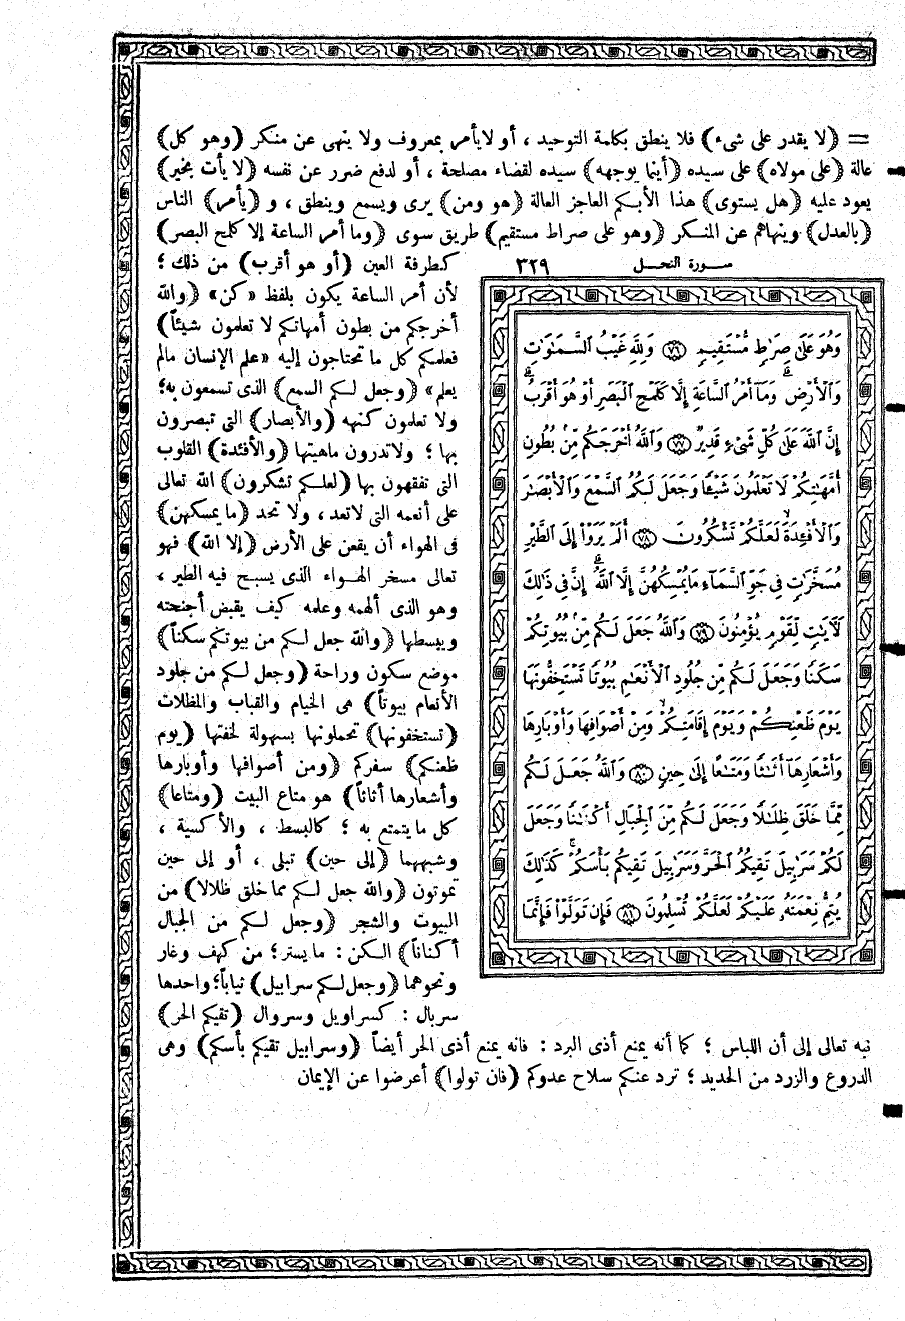 = ﴿لا يقدر على شىء﴾ فلا ينطق بكلمة التوحيد ، أو لايأمر بمعروف ولا ينهى عن منكر ﴿وهو كل﴾
عالة ﴿على مولاه﴾ على سيده ﴿أينما يوجهه﴾ سيده لقضاء مصلحة ، أو لدفع ضرر عن نفسه ﴿لا يأت بخير﴾
يعود عليه ﴿هل يستوى﴾ هذا الأبكم العاجز العالة ﴿هو ومن﴾ يرى ويسمع وينطق ، و ﴿يأمر﴾ الناس
﴿بالعدل﴾ وينهاهم عن المنكر ﴿وهو على صراط مستقيم﴾ طريق سوى ﴿وما أمر الساعة إلا كلمح البصر﴾
كطرفة العين ﴿أو هو أقرب﴾ من ذلك ؛
لأن أمر الساعة يكون بلفظ «كن» ﴿والله
أخرجكم من بطون أمهاتكم لا تعلمون شيئاً﴾
فعلمكم كل ما تحتاجون إليه «علم الإنسان مالم
يعلم» ﴿وجعل لكم السمع﴾ الذى تسمعون به؛
ولا تعلمون كنهه ﴿والأبصار﴾ التى تبصرون
بها ؛ ولاتدرون ماهيتها ﴿والأفئدة﴾ القلوب
التى تفقهون بها ﴿لعلكم تشكرون﴾ الله تعالى
على أنعمه التى لاتعد ، ولا تحد ﴿ما يمسكهن﴾
فى الهواء أن يقعن على الأرض ﴿إلا الله﴾ فهو
تعالى مسخر الهواء الذى يسبح فيه الطير ،
وهو الذى ألهمه وعلمه كيف يقبض أجنحته
ويبسطها ﴿والله جعل لكم من بيوتكم سكناً﴾
موضع سكون وراحة ﴿وجعل لكم من جلود
الأنعام بيوتاً﴾ هى الخيام والقباب والمظلات
﴿تستخفونها﴾ تحملونها بسهولة لخفتها ﴿يوم
ظعنكم﴾ سفركم ﴿ومن أصوافها وأوبارها
وأشعارها أثاثاً﴾ هو متاع البيت ﴿ومتاعا﴾
كل ما يتمتع به ؛ كالبسط ، والأكسية ،
وشبههما ﴿إلى حين﴾ تبلى ، أو إلى حين
تموتون ﴿والله جعل لكم مما خلق ظلالا﴾ من
البيوت والشجر ﴿وجعل لكم من الجبال
أكناناً﴾ الكن : ما يستر؛ من كهف وغار
ونحوهما ﴿وجعل لكم سرابيل﴾ ثياباً؛ واحدها
سربال : كسراويل وسروال ﴿تقيكم الحر﴾
نبه تعالى إلى أن اللباس ؛ كما أنه يمنع أذى البرد : فانه يمنع أذى الحر أيضاً ﴿وسرابيل تقيكم بأسكم﴾ وهى
الدروع والزرد من الحديد ؛ ترد عنكم سلاح عدوكم ﴿فان تولوا﴾ أعرضوا عن الإيمان
سورة النحل ٣٢٩
وَهُوَ عَلَىٰ صِرَٰطٍ مُّسْتَقِيمٍ ﴿٧٦﴾ وَلِلَّهِ غَيْبُ ٱلسَّمَٰوَٰتِ
وَٱلْأَرْضِ ۚ وَمَآ أَمْرُ ٱلسَّاعَةِ إِلَّا كَلَمْحِ ٱلْبَصَرِ أَوْ هُوَ أَقْرَبُ ۚ
إِنَّ ٱللَّهَ عَلَىٰ كُلِّ شَىْءٍ قَدِيرٌ ﴿٧٧﴾ وَٱللَّهُ أَخْرَجَكُم مِّنۢ بُطُونِ
أُمَّهَٰتِكُمْ لَا تَعْلَمُونَ شَيْـًٔا وَجَعَلَ لَكُمُ ٱلسَّمْعَ وَٱلْأَبْصَٰرَ
وَٱلْأَفْـِٔدَةَ ۙ لَعَلَّكُمْ تَشْكُرُونَ ﴿٧٨﴾ أَلَمْ يَرَوْا۟ إِلَى ٱلطَّيْرِ
مُسَخَّرَٰتٍ فِى جَوِّ ٱلسَّمَآءِ مَا يُمْسِكُهُنَّ إِلَّا ٱللَّهُ ۗ إِنَّ فِى ذَٰلِكَ
لَءَايَٰتٍ لِّقَوْمٍ يُؤْمِنُونَ ﴿٧٩﴾ وَٱللَّهُ جَعَلَ لَكُم مِّنۢ بُيُوتِكُمْ
سَكَنًا وَجَعَلَ لَكُم مِّن جُلُودِ ٱلْأَنْعَٰمِ بُيُوتًا تَسْتَخِفُّونَهَا
يَوْمَ ظَعْنِكُمْ وَيَوْمَ إِقَامَتِكُمْ ۙ وَمِنْ أَصْوَافِهَا وَأَوْبَارِهَا
وَأَشْعَارِهَآ أَثَٰثًا وَمَتَٰعًا إِلَىٰ حِينٍ ﴿٨٠﴾ وَٱللَّهُ جَعَلَ لَكُم
مِّمَّا خَلَقَ ظِلَٰلًا وَجَعَلَ لَكُم مِّنَ ٱلْجِبَالِ أَكْنَٰنًا وَجَعَلَ
لَكُمْ سَرَٰبِيلَ تَقِيكُمُ ٱلْحَرَّ وَسَرَٰبِيلَ تَقِيكُم بَأْسَكُمْ ۚ كَذَٰلِكَ
يُتِمُّ نِعْمَتَهُۥ عَلَيْكُمْ لَعَلَّكُمْ تُسْلِمُونَ ﴿٨١﴾ فَإِن تَوَلَّوْا۟ فَإِنَّمَا